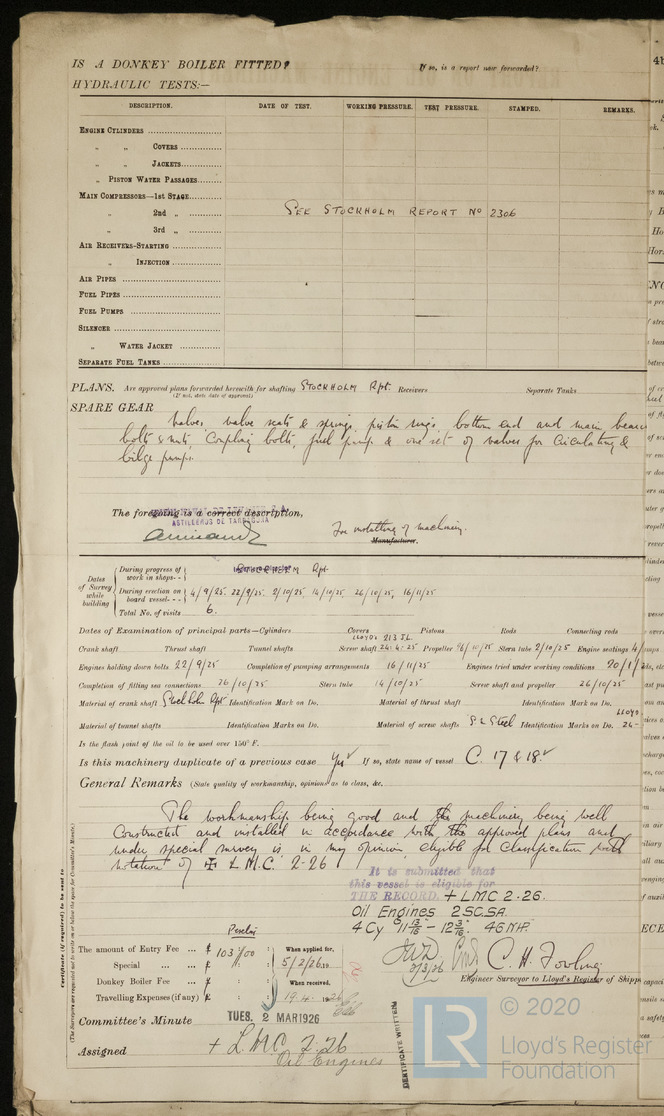 IS A DONKEY BOILER FITTED? If so, is a report now forwarded?
HYDRAULIC TESTS:—
DESCRIPTION. DATE OF TEST. WORKING PRESSURE. TEST PRESSURE. STAMPED. REMARKS.
ENGINE CYLINDERS
„ „ COVERS
„ „ JACKETS
„ PISTON WATER PASSAGES
MAIN COMPRESSORS—1st STAGE
„ 2nd „ SEE STOCKHOLM REPORT No 2306
„ 3rd „
AIR RECEIVERS-STARTING
„ INJECTION
AIR PIPES
FUEL PIPES
FUEL PUMPS
SILENCER
„ WATER JACKET
SEPARATE FUEL TANKS
PLANS. Are approved plans forwarded herewith for shafting STOCKHOLM Rpt. Receivers Separate Tanks
(If not, state date of approval)
SPARE GEAR
Valves, valve seats & springs, piston rings, bottom end and main
bolts & nuts, Coupling bolts, fuel pump & one set of valves for Circulating &
bilge pumps.
The foregoing is a correct description,
ASTILLEROS DE TARRAGONA
For installing of machinery.
Manufacturer.
Dates of Survey while building
During progress of work in shops - - STOCKHOLM Rpt
During erection on board vessel - - - 4/9/25 22/9/25 2/10/25 14/10/25 26/10/25 16/11/25
Total No. of visits 6.
Dates of Examination of principal parts—Cylinders Covers Pistons Rods Connecting rods
LLOYDS 213 JL.
Crank shaft Thrust shaft Tunnel shafts Screw shaft 24.4.25 Propeller 26/10/25 Stern tube 2/10/25 Engine seatings 4/
Engines holding down bolts 22/9/25 Completion of pumping arrangements 16/11/25 Engines tried under working conditions 20/1/2
Completion of fitting sea connections 26/10/25 Stern tube 14/10/25 Screw shaft and propeller 26/10/25
Material of crank shaft Stockholm Rpt Identification Mark on Do. Material of thrust shaft Identification Mark on Do.
LLOYDS
Material of tunnel shafts Identification Marks on Do. Material of screw shafts S. Steel Identification Marks on Do. 24-
Is the flash point of the oil to be used over 150° F.
Is this machinery duplicate of a previous case Yes If so, state name of vessel C. 17 & 18.
General Remarks (State quality of workmanship, opinions as to class, &c.
The workmanship being good and the machinery being well
Constructed and installed in accordance with the approved plans and
under special survey is in my opinion eligible for Classification with
notation of ✠ L.M.C. 2-26
It is submitted that
this vessel is eligible for
THE RECORD. + LMC 2.26.
Oil Engines 2SC.SA.
4 Cy 11 13/16 – 12 3/16. 46 NHP.
Certificate (if required) to be sent to
(The Surveyors are requested not to write on or below the space for Committee's Minute.)
Pesetas
The amount of Entry Fee ... £ 103/00 When applied for,
Special ... £ 5/2/26
Donkey Boiler Fee ... £ When received,
Travelling Expenses (if any) £ 19.4.
2/3/26
C. H. Fowling
Engineer Surveyor to Lloyd's Register of Shipp
Committee's Minute TUES. 2 MAR 1926
Assigned + L.M.C. 2.26
Oil Engines
CERTIFICATE WRITTEN
LR
© 2020
Lloyd's Register
Foundation